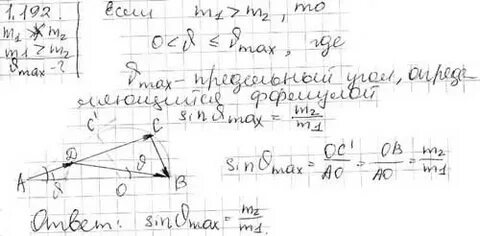 1.192.
m₁ > m₂
m₁ > m₂
ϑmax - ?
если m₁ > m₂, то
0 < ϑ ≤ ϑmax, где
ϑmax - предельный угол, опреде-
ляющийся формулой
sin ϑmax = m₂/m₁
C' C D ϑ A ϑ O B
sin ϑmax = OC'/AO = OB/AO = m₂/m₁
Ответ: sin ϑmax = m₂/m₁